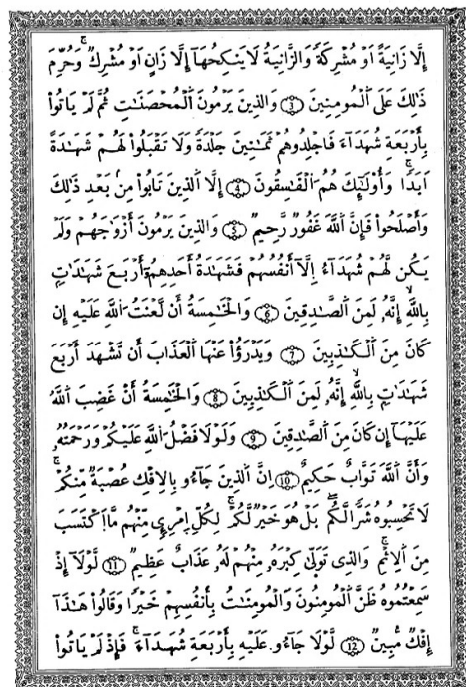 إِلَّا زَانِيَةً اَوْ مُشْرِكَةً وَالزَّانِيَةُ لَا يَنكِحُهَآ إِلَّا زَانٍ اَوْ مُشْرِكٌ وَحُرِّمَ
ذَٰلِكَ عَلَى اَلْمُومِنِينَ (3) وَالذِينَ يَرْمُونَ اَلْمُحْصَنَٰتِ ثُمَّ لَمْ يَاتُواْ
بِأَرْبَعَةِ شُهَدَآءَ فَاجْلِدُوهُمْ ثَمَٰنِينَ جَلْدَةً وَلَا تَقْبَلُواْ لَهُمْ شَهَٰدَةً
اَبَدًا وَأُوْلَٰٓئِكَ هُمُ اَلْفَٰسِقُونَ (4) إِلَّا اَلذِينَ تَابُواْ مِنۢ بَعْدِ ذَٰلِكَ
وَأَصْلَحُواْ فَإِنَّ اَللَّهَ غَفُورٌ رَّحِيمٌ (5) وَالذِينَ يَرْمُونَ أَزْوَٰجَهُمْ وَلَمْ
يَكُن لَّهُمْ شُهَدَآءُ اِلَّآ أَنفُسُهُمْ فَشَهَٰدَةُ أَحَدِهِمُۥٓ أَرْبَعَ شَهَٰدَٰتٍ
بِاللَّهِ إِنَّهُۥ لَمِنَ اَلصَّٰدِقِينَ (6) وَالْخَٰمِسَةُ أَن لَّعْنَتُ اُللَّهِ عَلَيْهِ إِن
كَانَ مِنَ اَلْكَٰذِبِينَ (7) وَيَدْرَؤُاْ عَنْهَا اَلْعَذَابَ أَن تَشْهَدَ أَرْبَعَ
شَهَٰدَٰتٍ بِاللَّهِ إِنَّهُۥ لَمِنَ اَلْكَٰذِبِينَ (8) وَالْخَٰمِسَةُ أَنْ غَضِبَ اَللَّهُ
عَلَيْهَآ إِن كَانَ مِنَ اَلصَّٰدِقِينَ (9) وَلَوْلَا فَضْلُ اُللَّهِ عَلَيْكُمْ وَرَحْمَتُهُۥ
وَأَنَّ اَللَّهَ تَوَّابٌ حَكِيمٌ (10) اِنَّ اَلذِينَ جَآءُو بِالِافْكِ عُصْبَةٌ مِّنكُمْ
لَا تَحْسِبُوهُ شَرًّا لَّكُم بَلْ هُوَ خَيْرٌ لَّكُمْ لِكُلِّ اِمْرِےٍٕ مِّنْهُم مَّا اَكْتَسَبَ
مِنَ اَلِاثْمِ وَالذِے تَوَلَّىٰ كِبْرَهُۥ مِنْهُمْ لَهُۥ عَذَابٌ عَظِيمٌ (11) لَّوْلَآ إِذْ
سَمِعْتُمُوهُ ظَنَّ اَلْمُومِنُونَ وَالْمُومِنَٰتُ بِأَنفُسِهِمْ خَيْرًا وَقَالُواْ هَٰذَآ
إِفْكٌ مُّبِينٌ (12) لَّوْلَا جَآءُو عَلَيْهِ بِأَرْبَعَةِ شُهَدَآءَ فَإِذْ لَمْ يَاتُواْ